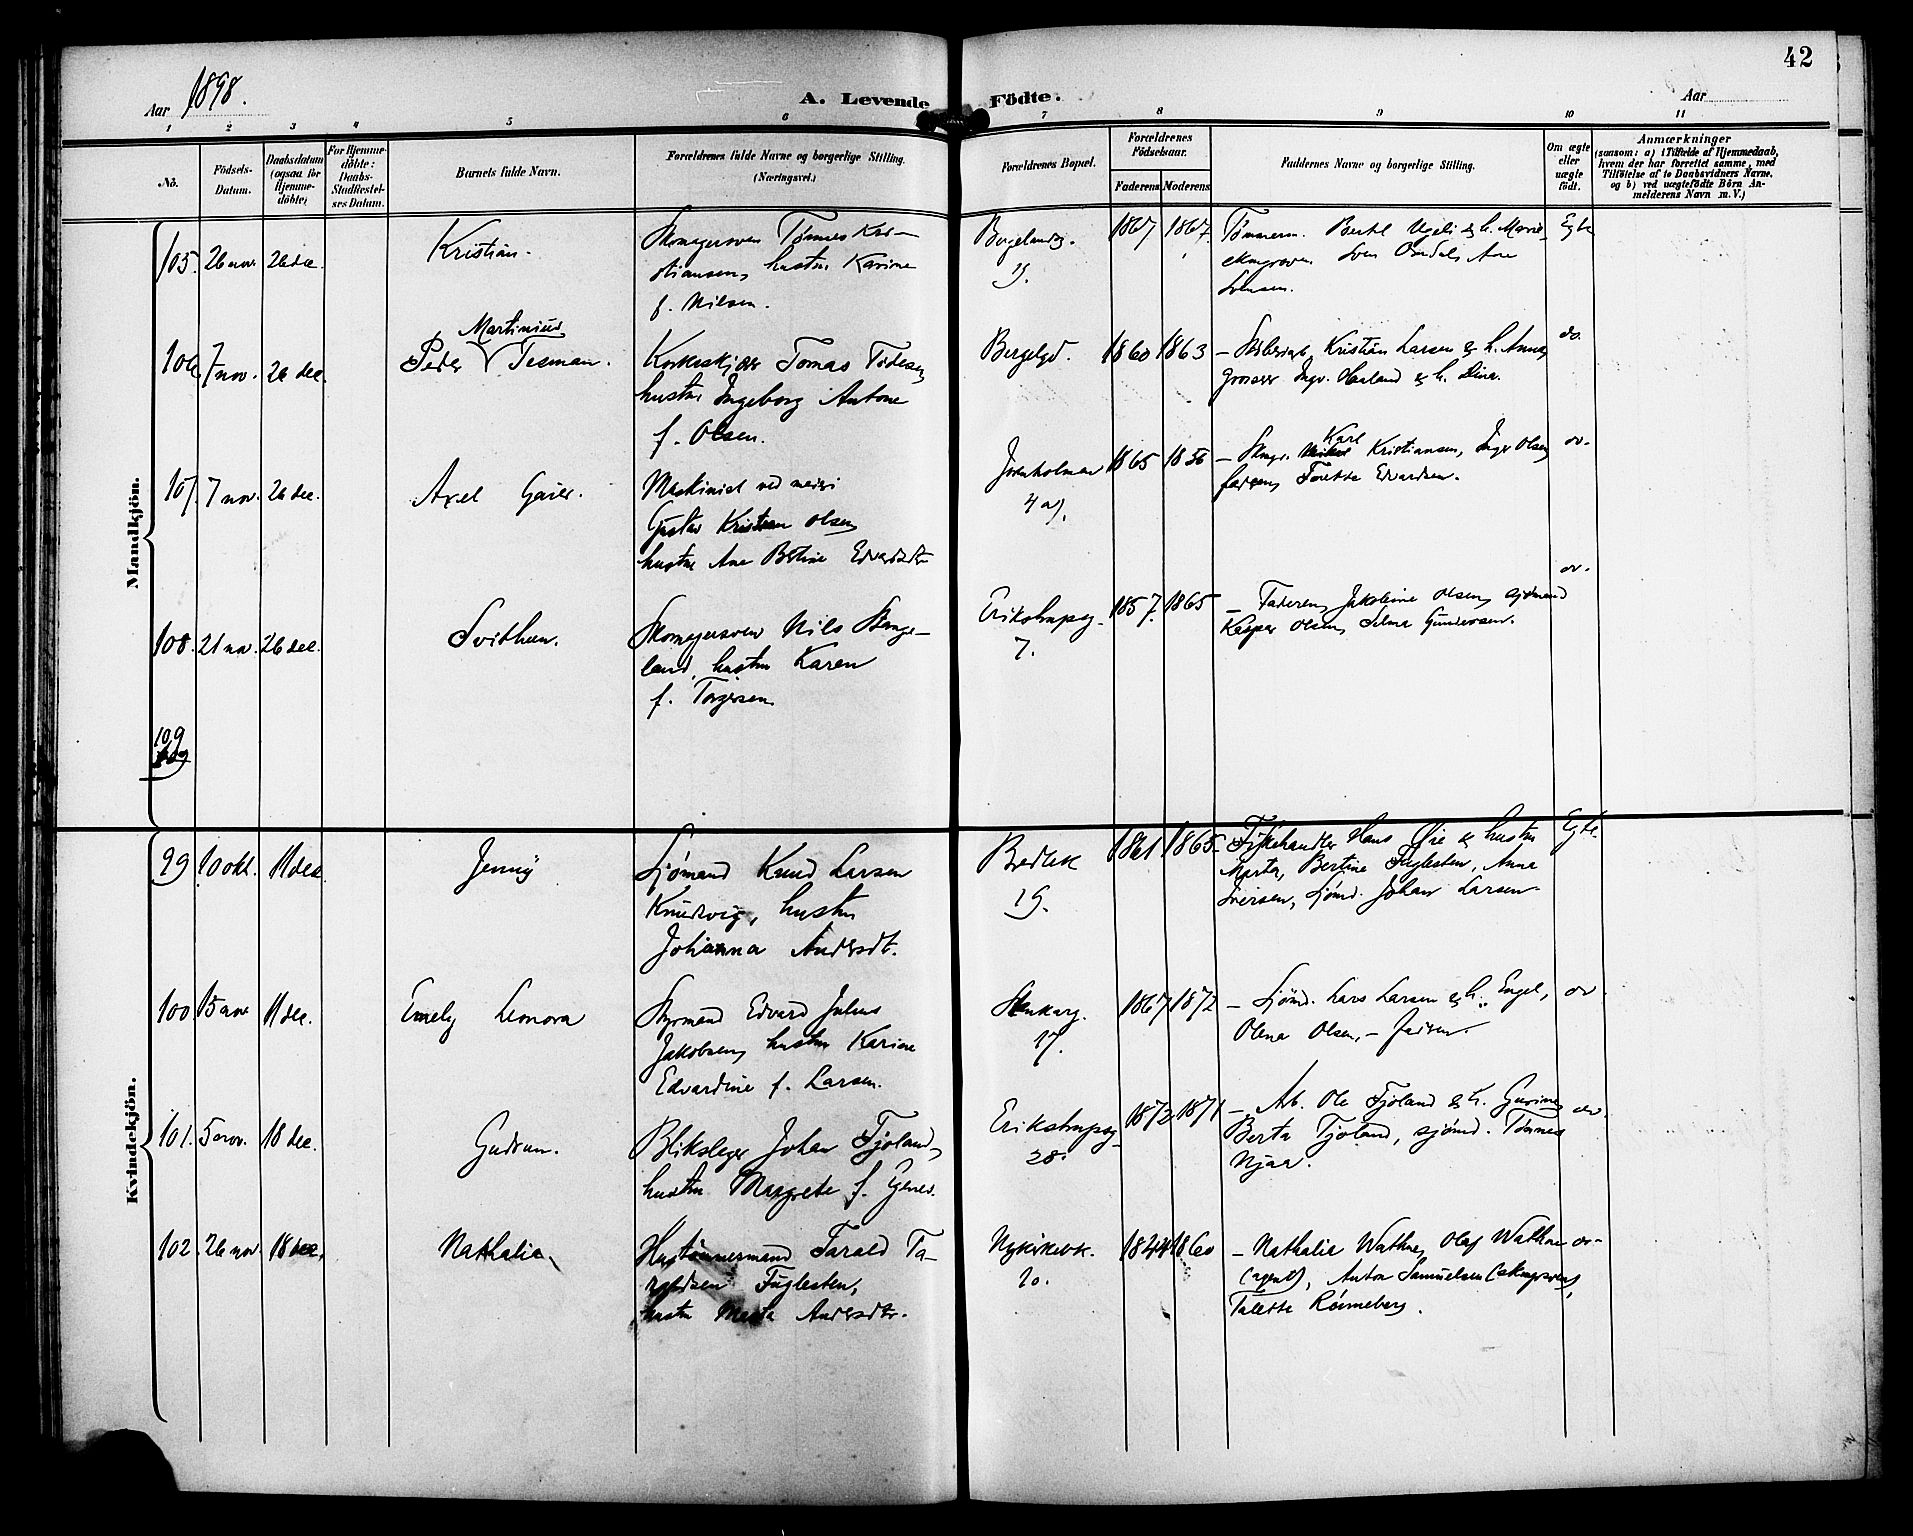 42
Aar 1898.
A. Levende Födte.
Aar
1 2 3 4 5 6 7 8 9 10 11
No.
Födsels-
Datum.
Daabsdatum
(ogsaa for
Hjemme-
döbte)
For Hjemme-
döbte:
Daabs-
Stadfæstel-
ses Datum.
Barnets fulde Navn.
Forældrenes fulde Navne og borgerlige Stilling.
(Næringsvei.)
Forældrenes Bopæl.
Forældrenes
Födselsaar.
Faderens Moderens
Faddernes Navne og borgerlige Stilling.
Om ægte
eller
uægte
født.
Anmærkninger
(saasom: a) i Tilfælde af Hjemmedaab,
hvem der har forrettet samme, med
Tilföielse af to Daabsvidners Navne,
og b) ved uægtefödte Börn An-
melderens Navn m. V.)
Mandkjön.
105. 26 nov. 26 dec. Kristian.
Skomagersven Tønnes Kri-
stiansen, hustru Karine
f. Nilsen.
Bergelandsg.
19.
1867 1867.
Tømmerm. Bertel Ugeli & h. Marie,
Sven Osvdal, Ane
Svensen.
Egte
106. 7 nov. 26 dec.
Martinius
Peder Tesman.
Tomas Todesen,
hustru Ingeborg Antone
f. Olsen.
Bergelgd.
1860 1863
Kristian Larsen & h. Anna,
Grosser Ingv. Haaland & h. Dina.
do.
107. 7 nov. 26 dec. Axel Geier.
Maskinist ved meieri
Gustav Kristian Olsen,
hustru Ane Bertine Edvardsdtr.
Jorenholmen
4 a).
1865 1856
Karl
Kristiansen, Inger Olsen,
faderen, Torette Edvardsen.
do.
108. 21 nov. 26 dec. Svithun.
Skomagersven Nils Stange-
land, hustru Karen
f. Torgersen
Erikstrupsg.
7.
1857. 1865
– Faderen, Jakobine Olsen, sjømand
Kasper Olsen, Selma Gundersen.
do.
109
Kvindekjön.
99 10 okt. 11 dec. Jenny
Sjömand Knud Larsen
Knudsvig, hustru
Johanna Andersdt.
Bredbk
19.
1861 1865
– Fiskehandler Hans Øie & hustru
Marta, Bertine Fuglesten, Anna
Iversen, Sjömd. Johan Larsen
Egte.
100 15 nov 11 dec. Emely Leonora
Styrmand Edvard Julius
Jakobsen, hustru Karine
Edvardine f. Larsen.
Stenkarg.
17.
1867 1872
– Sjömd. Lars Larsen & h. Engel,
Olena Olsen, – faderen.
do
101. 5 nov. 18 dec. Gudrun.
Blikslager Johan Tjoland,
hustru Margrete f. Gjerde.
Erikstrupsg.
28.
1872 1871
– Arb. Ole Tjoland & h. Gurine,
Berta Tjoland, sjömd. Tönnes
Njaa.
do
102. 26 nov. 18 dec. Nathalie
Hustömmermand Tarald Ta-
raldsen Fuglesten,
hustru Marta Andersdtr.
Nykirkebk.
20.
1844 1860
– Nathalia Wathne, Olaf Wathne
(agent), Anton Samuelsen (skmgrsven),
Talette Rönneberg.
do